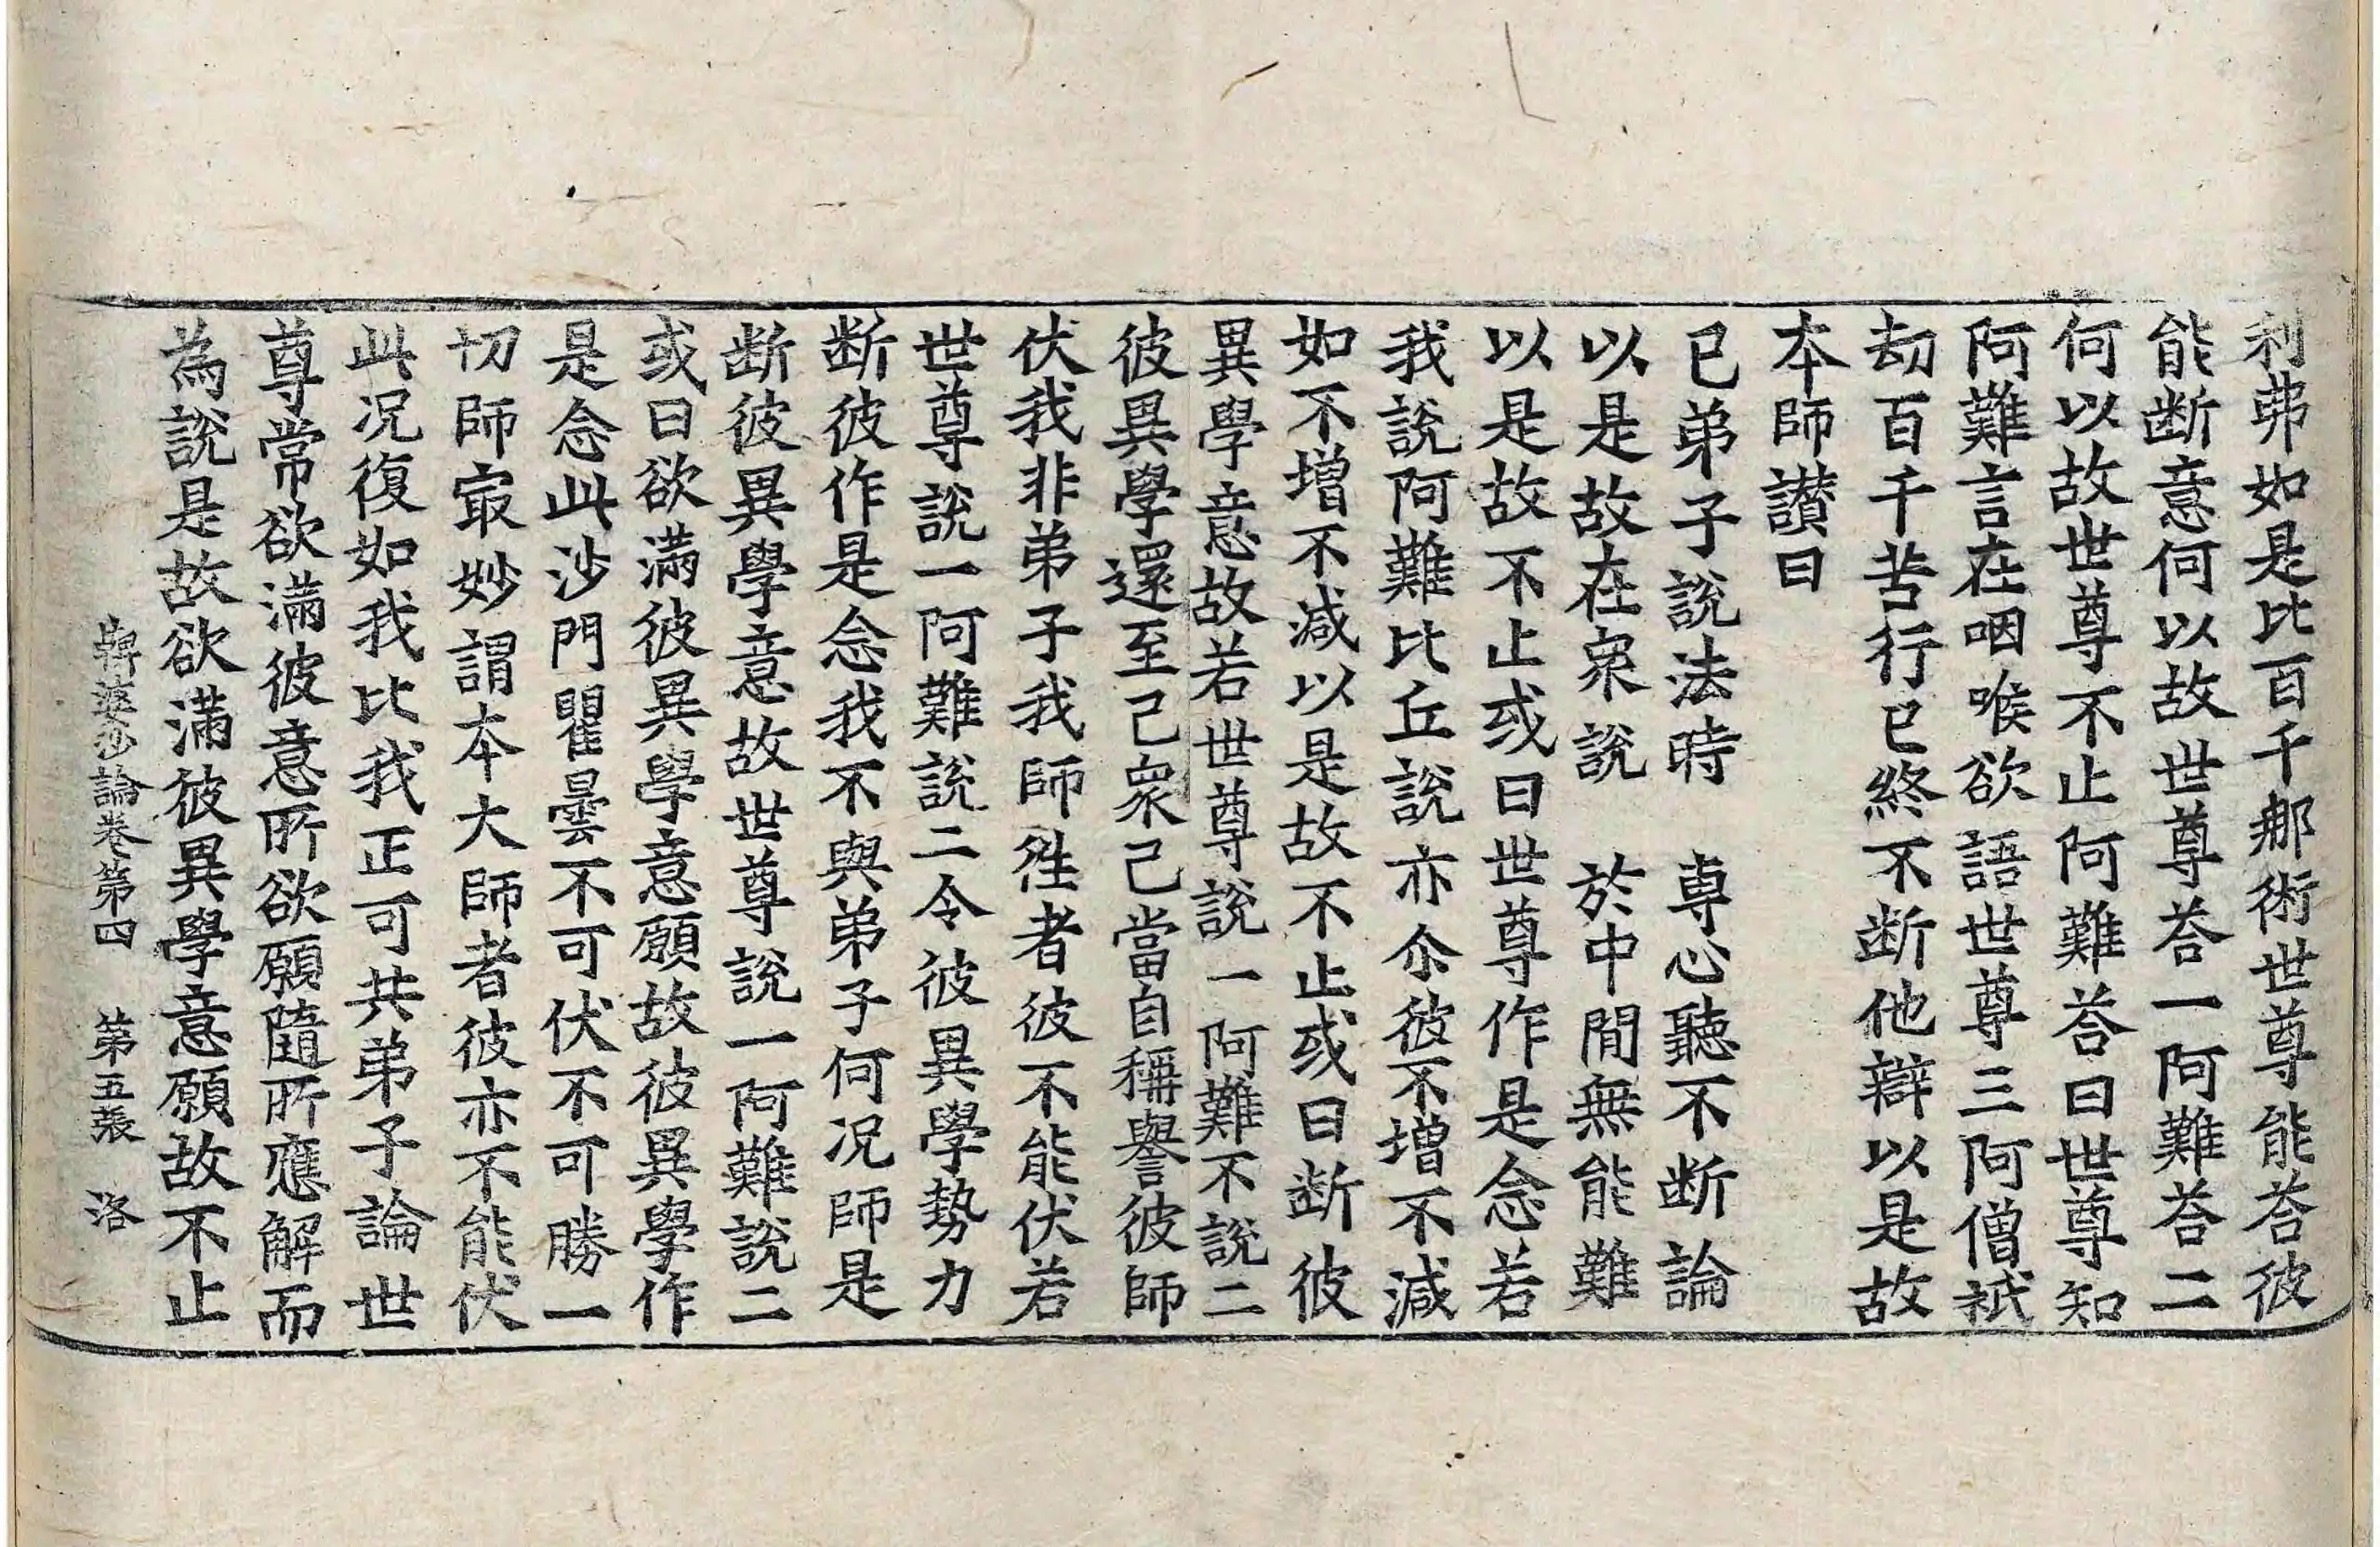 利弗如是比百千那術世尊能荅彼
能断意何以故世尊荅一阿難荅二
何以故世尊不止阿難荅曰世尊知
阿難言在咽喉欲語世尊三阿僧祇
劫百千苦行已終不断他辯以是故
本師讃曰
已弟子說法時　專心聽不断論
以是故在衆說　於中間無能難
以是故不止或曰世尊作是念若
我說阿難比丘說亦尒彼不增不減
如不增不減以是故不止或曰断彼
異學意故若世尊說一阿難不說二
彼異學還至己衆己當自稱譽彼師
伏我非弟子我師徃者彼不能伏若
世尊說一阿難說二令彼異學勢力
断彼作是念我不與弟子何况師是
断彼異學意故世尊說一阿難說二
或曰欲滿彼異學意願故彼異學作
是念此沙門瞿曇不可伏不可勝一
切師㝡妙謂本大師者彼亦不能伏
此况復如我比我正可共弟子論世
尊常欲滿彼意所欲願隨所應解而
為說是故欲滿彼異學意願故不止
鞞婆沙論卷第四　第五張　洛